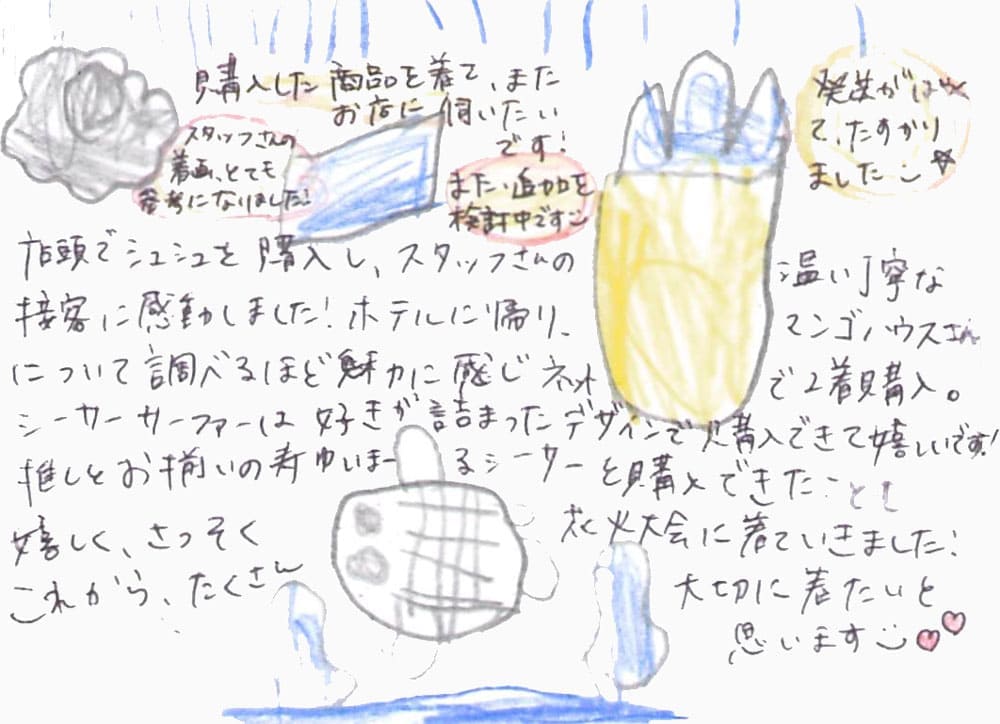 購入した商品を着て、また
お店に伺いたい
です!
スタッフさんの
着画、とても
参考になりました!
また追加を
検討中です
発送がはやく
て、たすかり
ました
店頭でシュシュを購入し、スタッフさんの 温い丁寧な
接客に感動しました!ホテルに帰り、 マンゴハウスさん
について調べるほど魅力に感じネット で2着購入。
シーサーサーファーは好きが詰まったデザインで購入できて嬉しいです!
推しとお揃いの るシーサーを購入できたことも
嬉しく、さっそく 花火大会に着ていきました!
これから、たくさん 大切に着たいと
思います